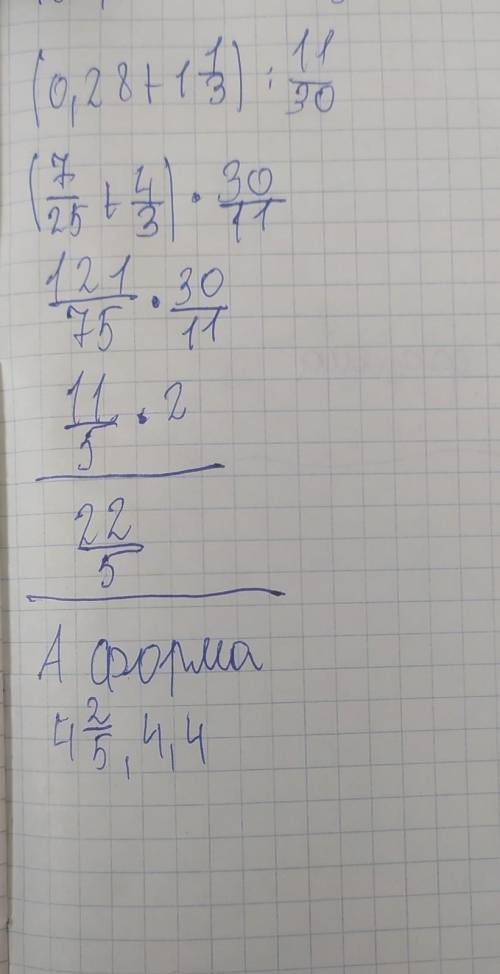 (0,28+1 1/3) : 11/30
(7/25 + 4/3) · 30/11
121/75 · 30/11
11/5 · 2
22/5
А форма
4 2/5, 4,4